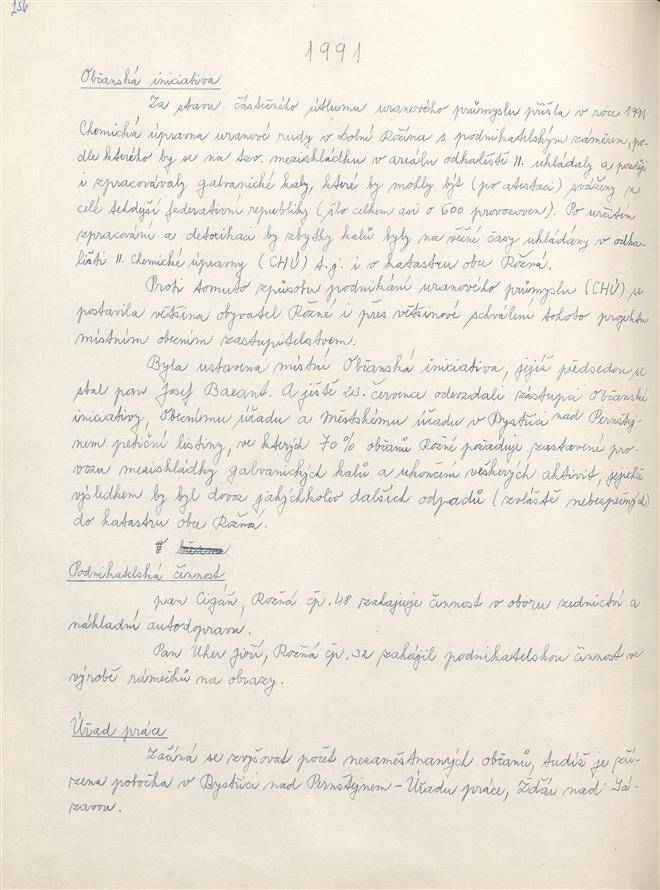 156
1991
Občanská iniciativa
Za stavu částečného útlumu uranového průmyslu přišla v roce 1991
Chemická úpravna uranové rudy v Dolní Rožínce s podnikatelským záměrem, po-
dle kterého by se na tzv. meziskládku v areálu odkaliště II. ukládaly a později
i zpracovávaly galvanické kaly, které by mohly být (po atestaci) sváženy z
celé tehdejší federativní republiky (šlo celkem asi o 600 provozoven). Po určitém
zpracování a detoxikaci by zbytky kalů byly na věčné časy ukládány v odka-
lišti II. Chemické úpravny (CHÚ) t.j. i v katastru obce Rožná.
Proti tomuto způsobu podnikání uranového průmyslu (CHÚ) se
postavila většina obyvatel Rožné i přes většinové schválení tohoto projektu
místním obecním zastupitelstvem.
Byla ustavena místní Občanská iniciativa, jejíž předsedou se
stal pan Josef Bazant. A ještě 23. července odevzdali zástupci Občanské
iniciativy, Obecnímu úřadu a Městskému úřadu v Bystřici nad Pernštej-
nem petiční listiny, ve kterých 70% občanů Rožné požaduje zastavení pro-
vozu meziskládky galvanických kalů a ukončení veškerých aktivit, jejichž
výsledkem by byl dovoz jakýchkoliv dalších odpadů (zvláště nebezpečných)
do katastru obce Rožná.
Podnikatelská činnost
pan Cigáň, Rožná čp. 48 zahajuje činnost v oboru zednictví a
nákladní autodopravu.
Pan Uher Jiří, Rožná čp. 32 zahájil podnikatelskou činnost ve
výrobě rámečků na obrazy.
Úřad práce
Začíná se zvyšovat počet nezaměstnaných občanů, tudíž je zří-
zena pobočka v Bystřici nad Pernštejnem - Úřadu práce, Žďár nad Sá-
zavou.